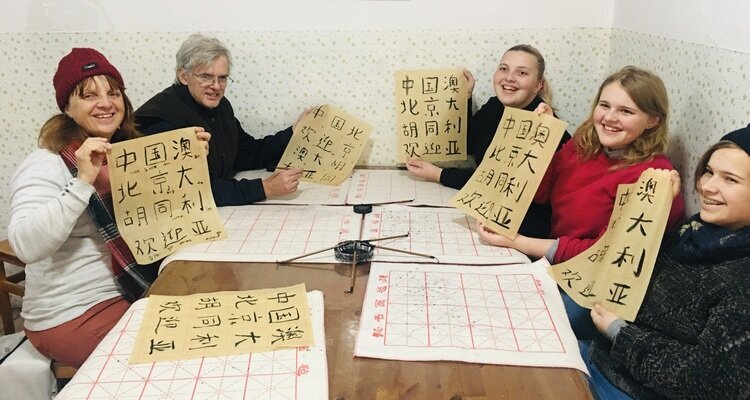 中国澳
北京大
胡同利
欢迎亚
中国北
欢迎京
澳大
中国澳
北京大
胡同利
欢迎亚
中国澳
北京大
胡同利
欢迎亚
中澳
大
同利
欢亚
中国澳
北京大
胡同利
欢迎亚